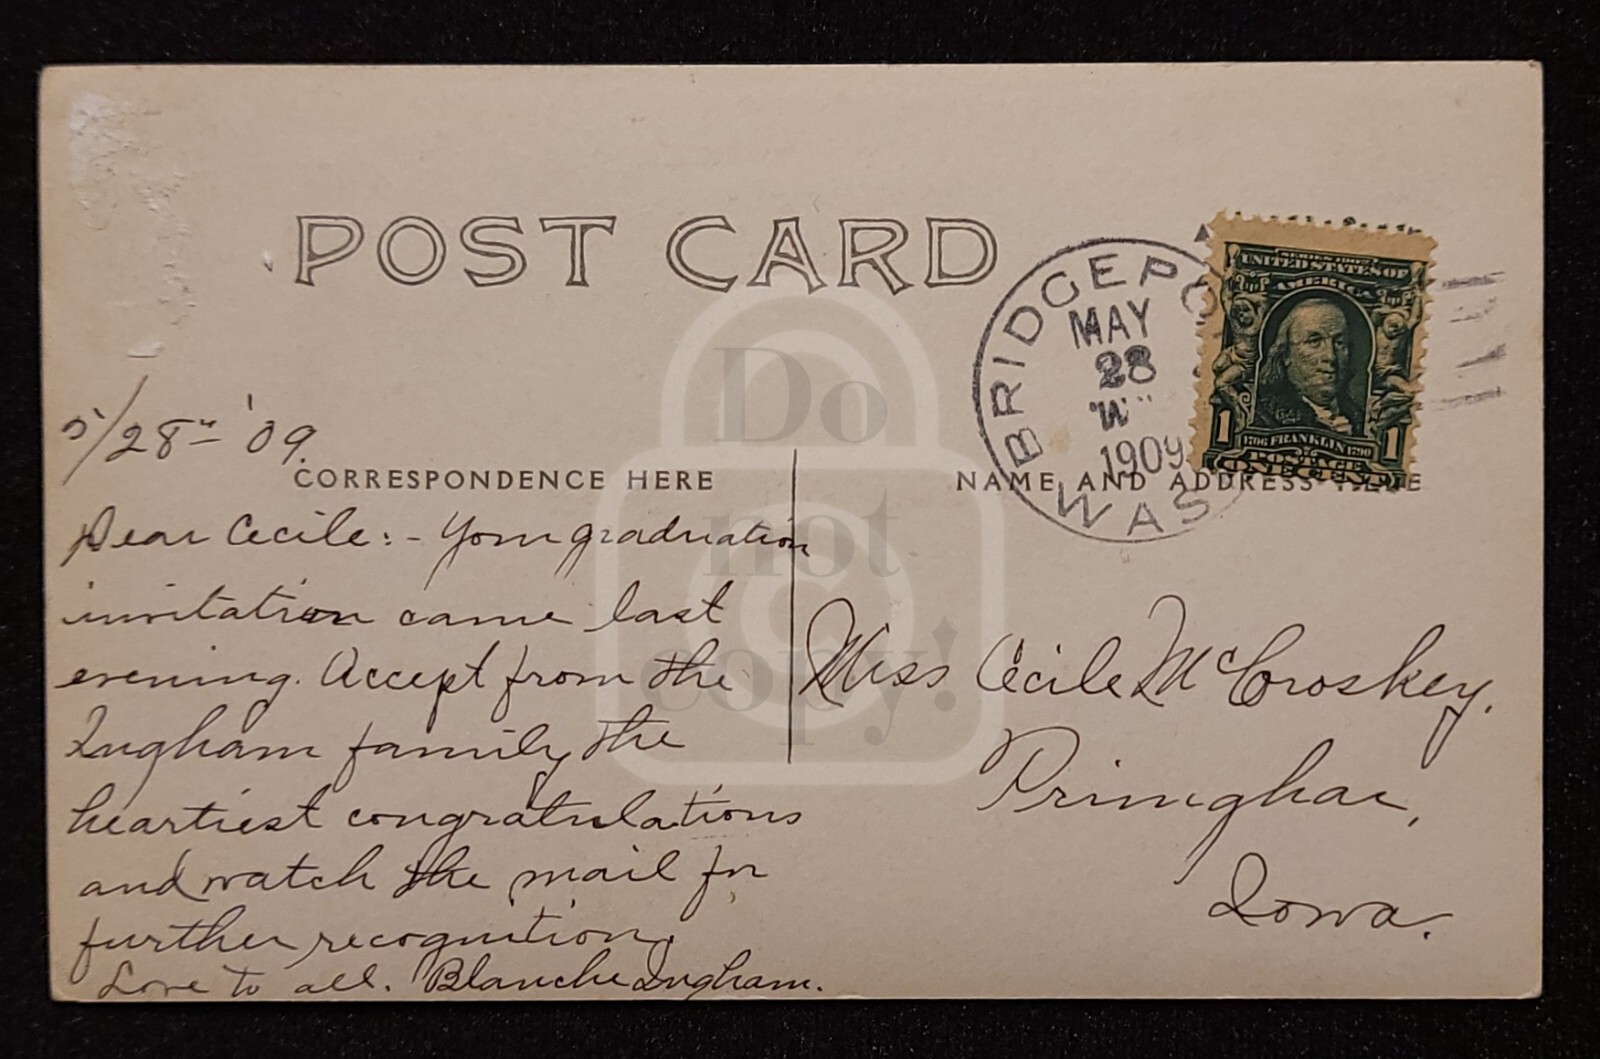 POST CARD
BRIDGEPO
MAY
28
1909
WAS
SERIES 1902
UNITED STATES OF
AMERICA
1 1706 FRANKLIN 1790 1
POSTAGE
ONE CENT
5/28th '09.
CORRESPONDENCE HERE
NAME AND ADDRESS
Dear Cecile:- Your graduation
invitation came last
evening. Accept from the
Ingham family the
heartiest congratulations
and watch the mail for
further recognition.
Love to all. Blanche Ingham.
Miss Cecile McCroskey.
Primghar,
Iowa.
Do
not
copy!